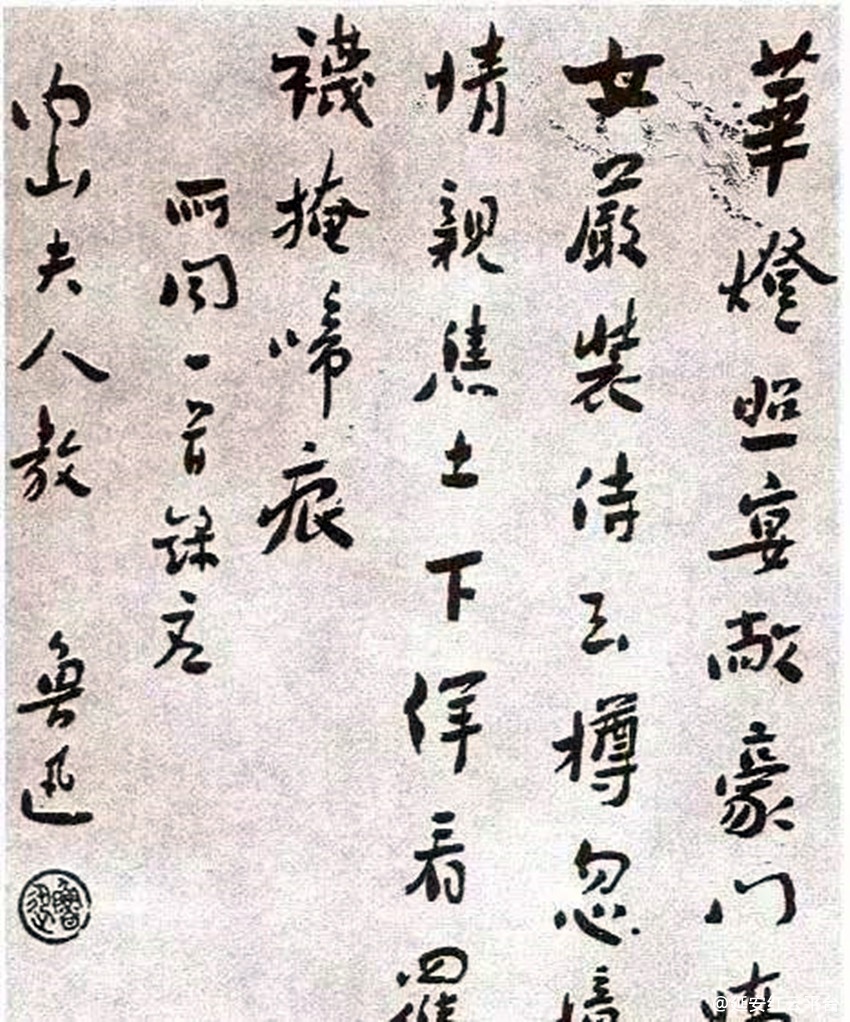 華燈照宴敞豪門嬌
女嚴裝侍玉樽忽憶
情親焦土下佯看羅
襪掩啼痕
所聞一首錄應
內山夫人教 魯迅
魯迅